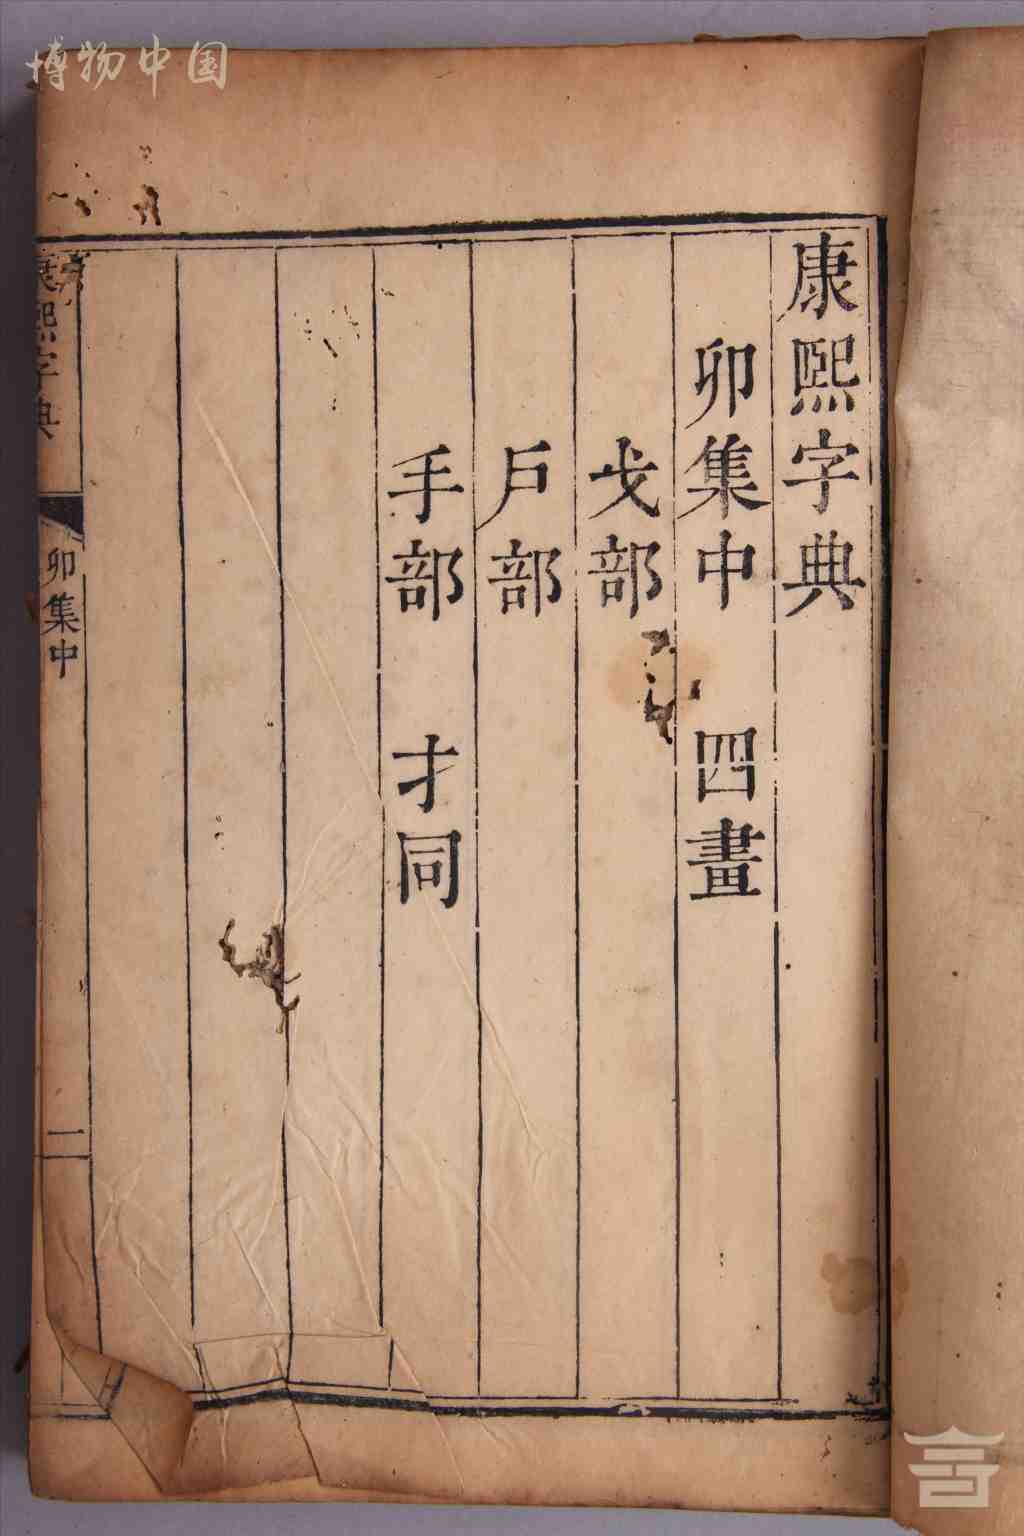 博物中国
康熙字典
卯集中 四畫
戈部
戶部
手部 才同
康熙字典
卯集中
一